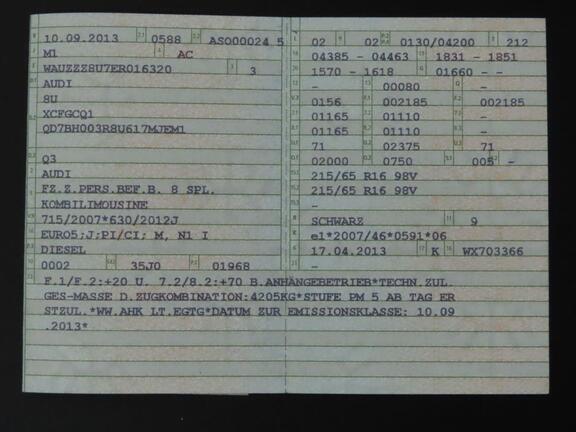 10.09.2013 0588 ASO00024 5
M1 AC
WAUZZZ8U7ER016320 3
AUDI
8U
XCFGCQ1
QD7BH003R8U617MJEM1
Q3
AUDI
FZ.Z.PERS.BEF.B. 8 SPL.
KOMBILIMOUSINE
715/2007*630/2012J
EURO5;J;PI/CI; M, N1 I
DIESEL
0002 35J0 01968
02 02 0130/04200 212
04385 - 04463 1831 - 1851
1570 - 1618 01660 - -
- 00080 -
0156 002185 002185
01165 01110 -
01165 01110 -
71 02375 71
02000 0750 005 -
215/65 R16 98V
215/65 R16 98V
-
SCHWARZ 9
e1*2007/46*0591*06
17.04.2013 K WX703366
-
F.1/F.2:+20 U. 7.2/8.2:+70 B.ANHÄNGEBETRIEB*TECHN.ZUL.
GES-MASSE D.ZUGKOMBINATION:4205KG*STUFE PM 5 AB TAG ER
STZUL.*WW.AHK LT.EGTG*DATUM ZUR EMISSIONSKLASSE: 10.09
.2013*